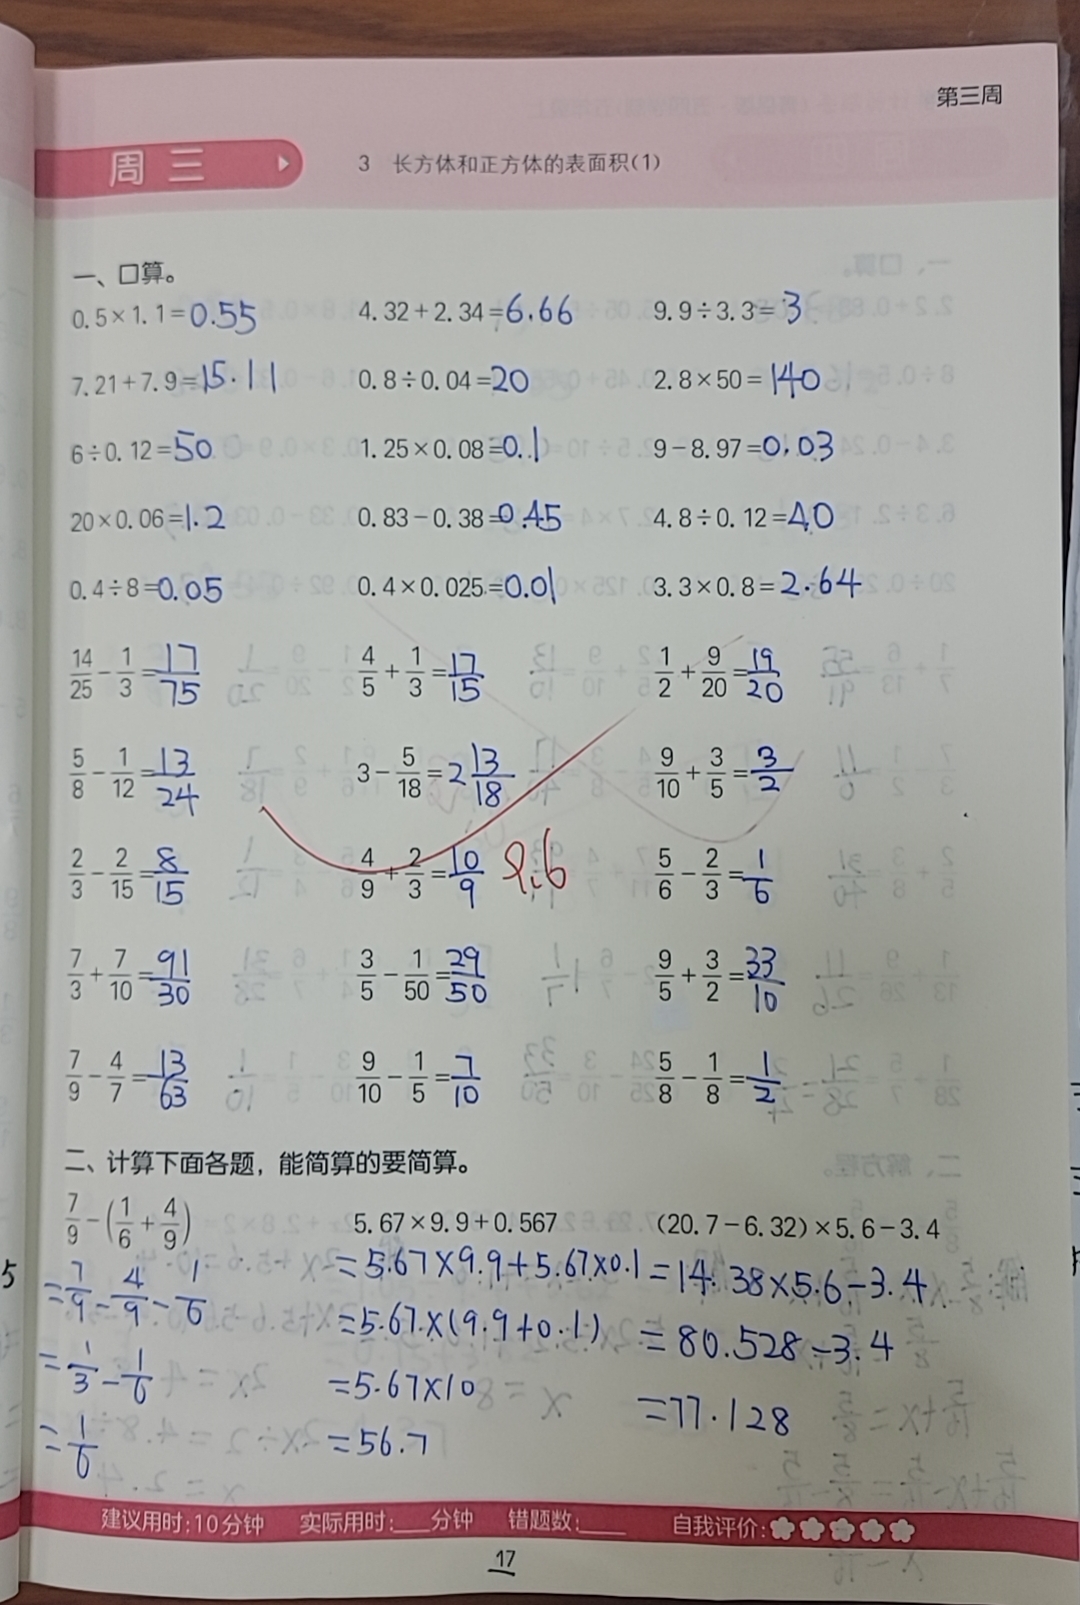 第三周
周三
3 长方体和正方体的表面积(1)
一、口算。
0.5×1.1=0.55 4.32+2.34=6.66 9.9÷3.3=3
7.21+7.9=15.11 0.8÷0.04=20 2.8×50=140
6÷0.12=50 1.25×0.08=0.1 9-8.97=0.03
20×0.06=1.2 0.83-0.38=0.45 4.8÷0.12=40
0.4÷8=0.05 0.4×0.025=0.01 3.3×0.8=2.64
14/25-1/3=17/75 4/5+1/3=17/15 1/2+9/20=19/20
5/8-1/12=13/24 3-5/18=2 13/18 9/10+3/5=3/2
2/3-2/15=8/15 4/9+2/3=10/9 9.6 5/6-2/3=1/6
7/3+7/10=91/30 3/5-1/50=29/50 9/5+3/2=33/10
7/9-4/7=13/63 9/10-1/5=7/10 5/8-1/8=1/2
二、计算下面各题，能简算的要简算。
7/9-(1/6+4/9) 5.67×9.9+0.567 (20.7-6.32)×5.6-3.4
=7/9-4/9-1/6 =5.67×9.9+5.67×0.1 =14.38×5.6-3.4
=1/3-1/6 =5.67×(9.9+0.1) =80.528-3.4
=1/6 =5.67×10 =77.128
=56.7
建议用时:10分钟 实际用时:___分钟 错题数:___ 自我评价:
17